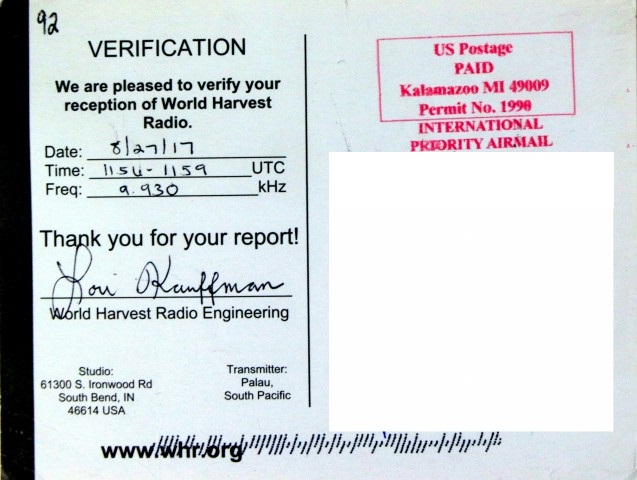 92
VERIFICATION
We are pleased to verify your
reception of World Harvest
Radio.
Date: 8/27/17
Time: 1154 - 1159 UTC
Freq: 9.930 kHz
Thank you for your report!
Lori Kauffman
World Harvest Radio Engineering
Studio:
61300 S. Ironwood Rd
South Bend, IN
46614 USA
Transmitter:
Palau,
South Pacific
www.whr.org
US Postage
PAID
Kalamazoo MI 49009
Permit No. 1990
INTERNATIONAL
PRIORITY AIRMAIL